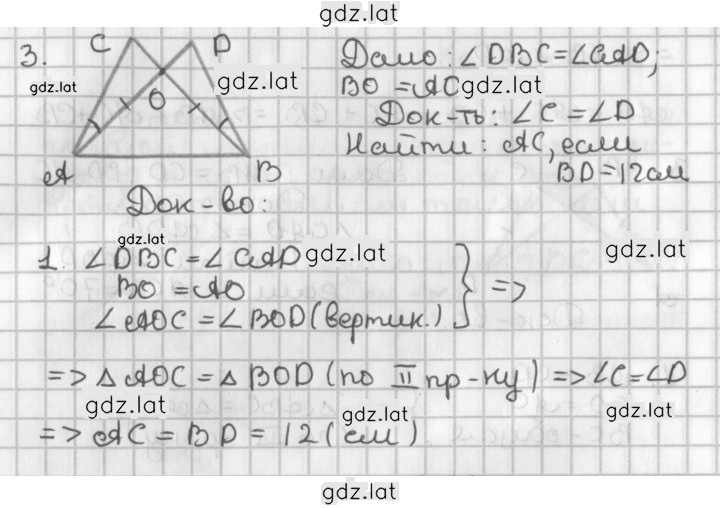 gdz.lat
3. C D Дано: ∠DBC=∠CAD;
gdz.lat gdz.lat BO=AC gdz.lat
O Док-ть: ∠C=∠D
Найти: AC, если
A B BD=12см
Док-во:
gdz.lat
1. ∠DBC=∠CAD gdz.lat gdz.lat
BO=AO } =>
∠AOC=∠BOD (вертик.)
=> △AOC=△BOD (по II пр-ку) => ∠C=∠D
gdz.lat gdz.lat gdz.lat
=> AC=BD=12(см)
gdz.lat